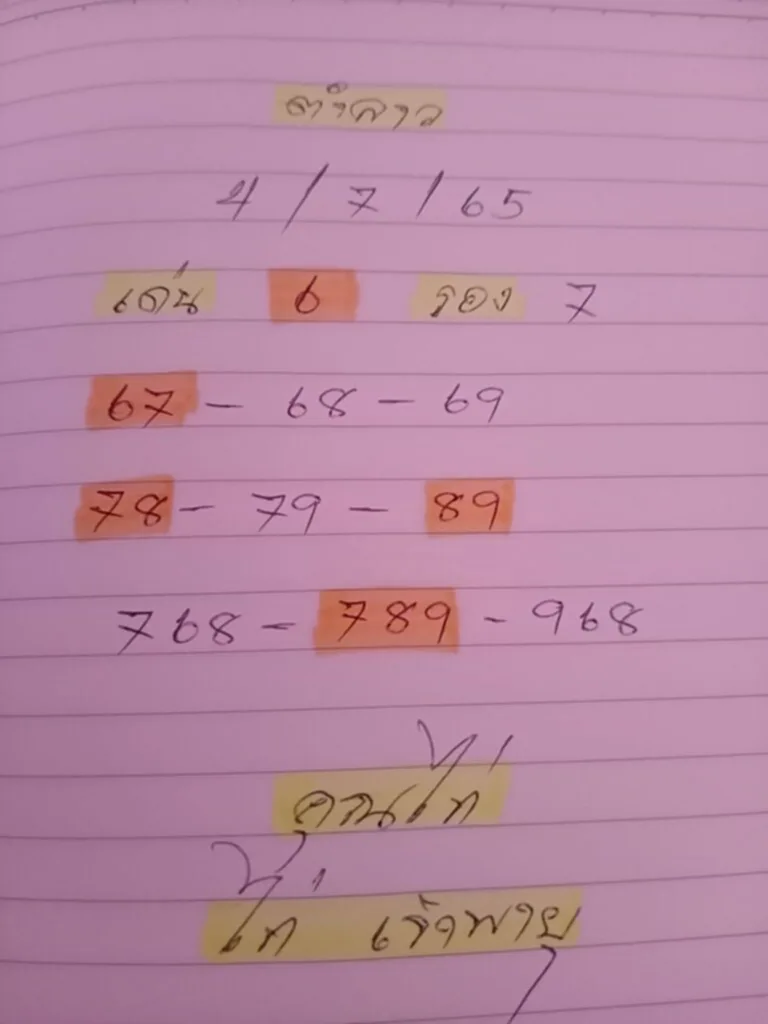 ตำลาว
4/7/65
เด่น 6 รอง 7
67 - 68 - 69
78 - 79 - 89
768 - 789 - 968
คุณไก่
ไก่ เจ้าพายุ